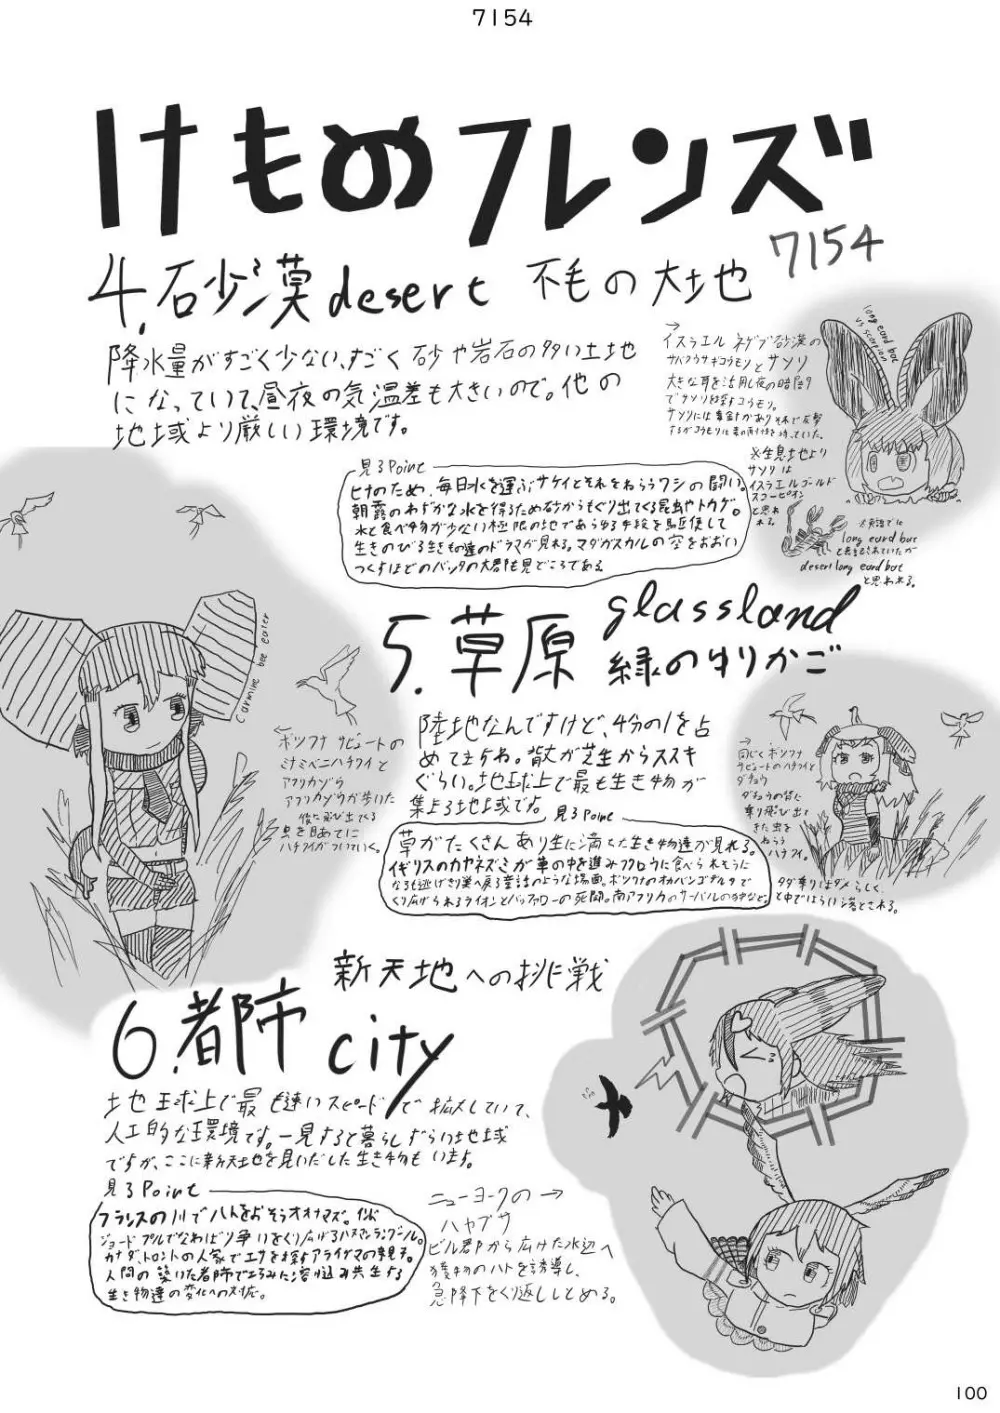 7154
けものフレンズ
7154
4.砂漠desert 不毛の大地
降水量がすごく少ない、すごく砂や岩石の多い土地
になっていて、昼夜の気温差も大きいので。他の
地域より厳しい環境です。
→
イスラエル ネゲブ砂漠の
サバクウサギコウモリとサソリ
大きな耳を活用し夜の暗闇
でサソリを探すコウモリ。
long eard bat
vs scorpion
※生息地より
サソリは
イスラエルゴールド
スコーピオン
と思われる
long eard bat
desert long eard bat
と思われる。
見るPoint
ヒナのため、毎日水を運ぶサケイとそれをねらうワシの闘い。
朝露のわずかな水を得るため砂からもぐり出てくる昆虫やトカゲ。
水と食べ物が少ない極限の地であらゆる手段を駆使して
生きのびる生きもの達のドラマが見れる。マダガスカルの空をおおい
つくすほどのバッタの大群も見どころである
5.草原 glassland
緑のゆりかご
陸地なんですけど、4分の1を占
めてますね。背丈が芝生からススキ
ぐらい。地球上で最も生き物が
集まる地域です。
carmine bee eater
←
ボツワナ サビュートの
ミナミベニハチクイと
アフリカゾウ
アフリカゾウが歩いた
後に飛び出てくる
虫を目あてに
ハチクイがついていく。
同じくボツワナ
サビュートのハチクイと
ダチョウ
ダチョウの背に
乗り飛び出て
きた虫を
ねらう
ハチクイ。
タダ乗りはダメらしく、
と中ではらい落とされる。
見るPoint
草がたくさんあり生に満ちた生き物達が見れる。
イギリスのカヤネズミが草の中を進みフクロウに食べられそうに
なるも逃げきり巣へ戻る童話のような場面。ボツワナのオカバンゴデルタで
くり広げられるライオンとバッファローの死闘。南アフリカのサーバルの狩など。
6.都市 city
新天地への挑戦
地球上で最も速いスピードで拡大していて、
人工的な環境です。一見すると暮らしずらい地域
ですが、ここに新天地を見いだした生き物もいます。
見るPoint
フランスの川でハトをおそうオオナマズ。インド
ジョードプルでなわばり争いをくり広げるハヌマンラングール。
カナダ、トロントの人家でエサを探すアライグマの親子。
人間の築いた都市でたくみに溶け込み共生する
生き物達の変化への対応。
ニューヨークの→
ハヤブサ
ビル群から広けた水辺へ
獲物のハトを誘導し、
急降下をくり返ししとめる。
100